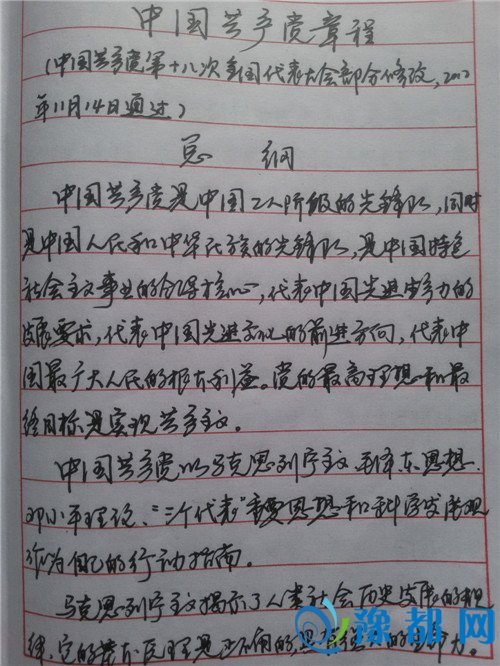 中国共产党章程
(中国共产党第十八次全国代表大会部分修改,2012
年11月14日通过)
总 纲
中国共产党是中国工人阶级的先锋队,同时
是中国人民和中华民族的先锋队,是中国特色
社会主义事业的领导核心,代表中国先进生产力的
发展要求,代表中国先进文化的前进方向,代表中
国最广大人民的根本利益。党的最高理想和最
终目标是实现共产主义。
中国共产党以马克思列宁主义、毛泽东思想、
邓小平理论、“三个代表”重要思想和科学发展观
作为自己的行动指南。
马克思列宁主义揭示了人类社会历史发展的规
律,它的基本原理是正确的,具有强大的生命力。
豫都网